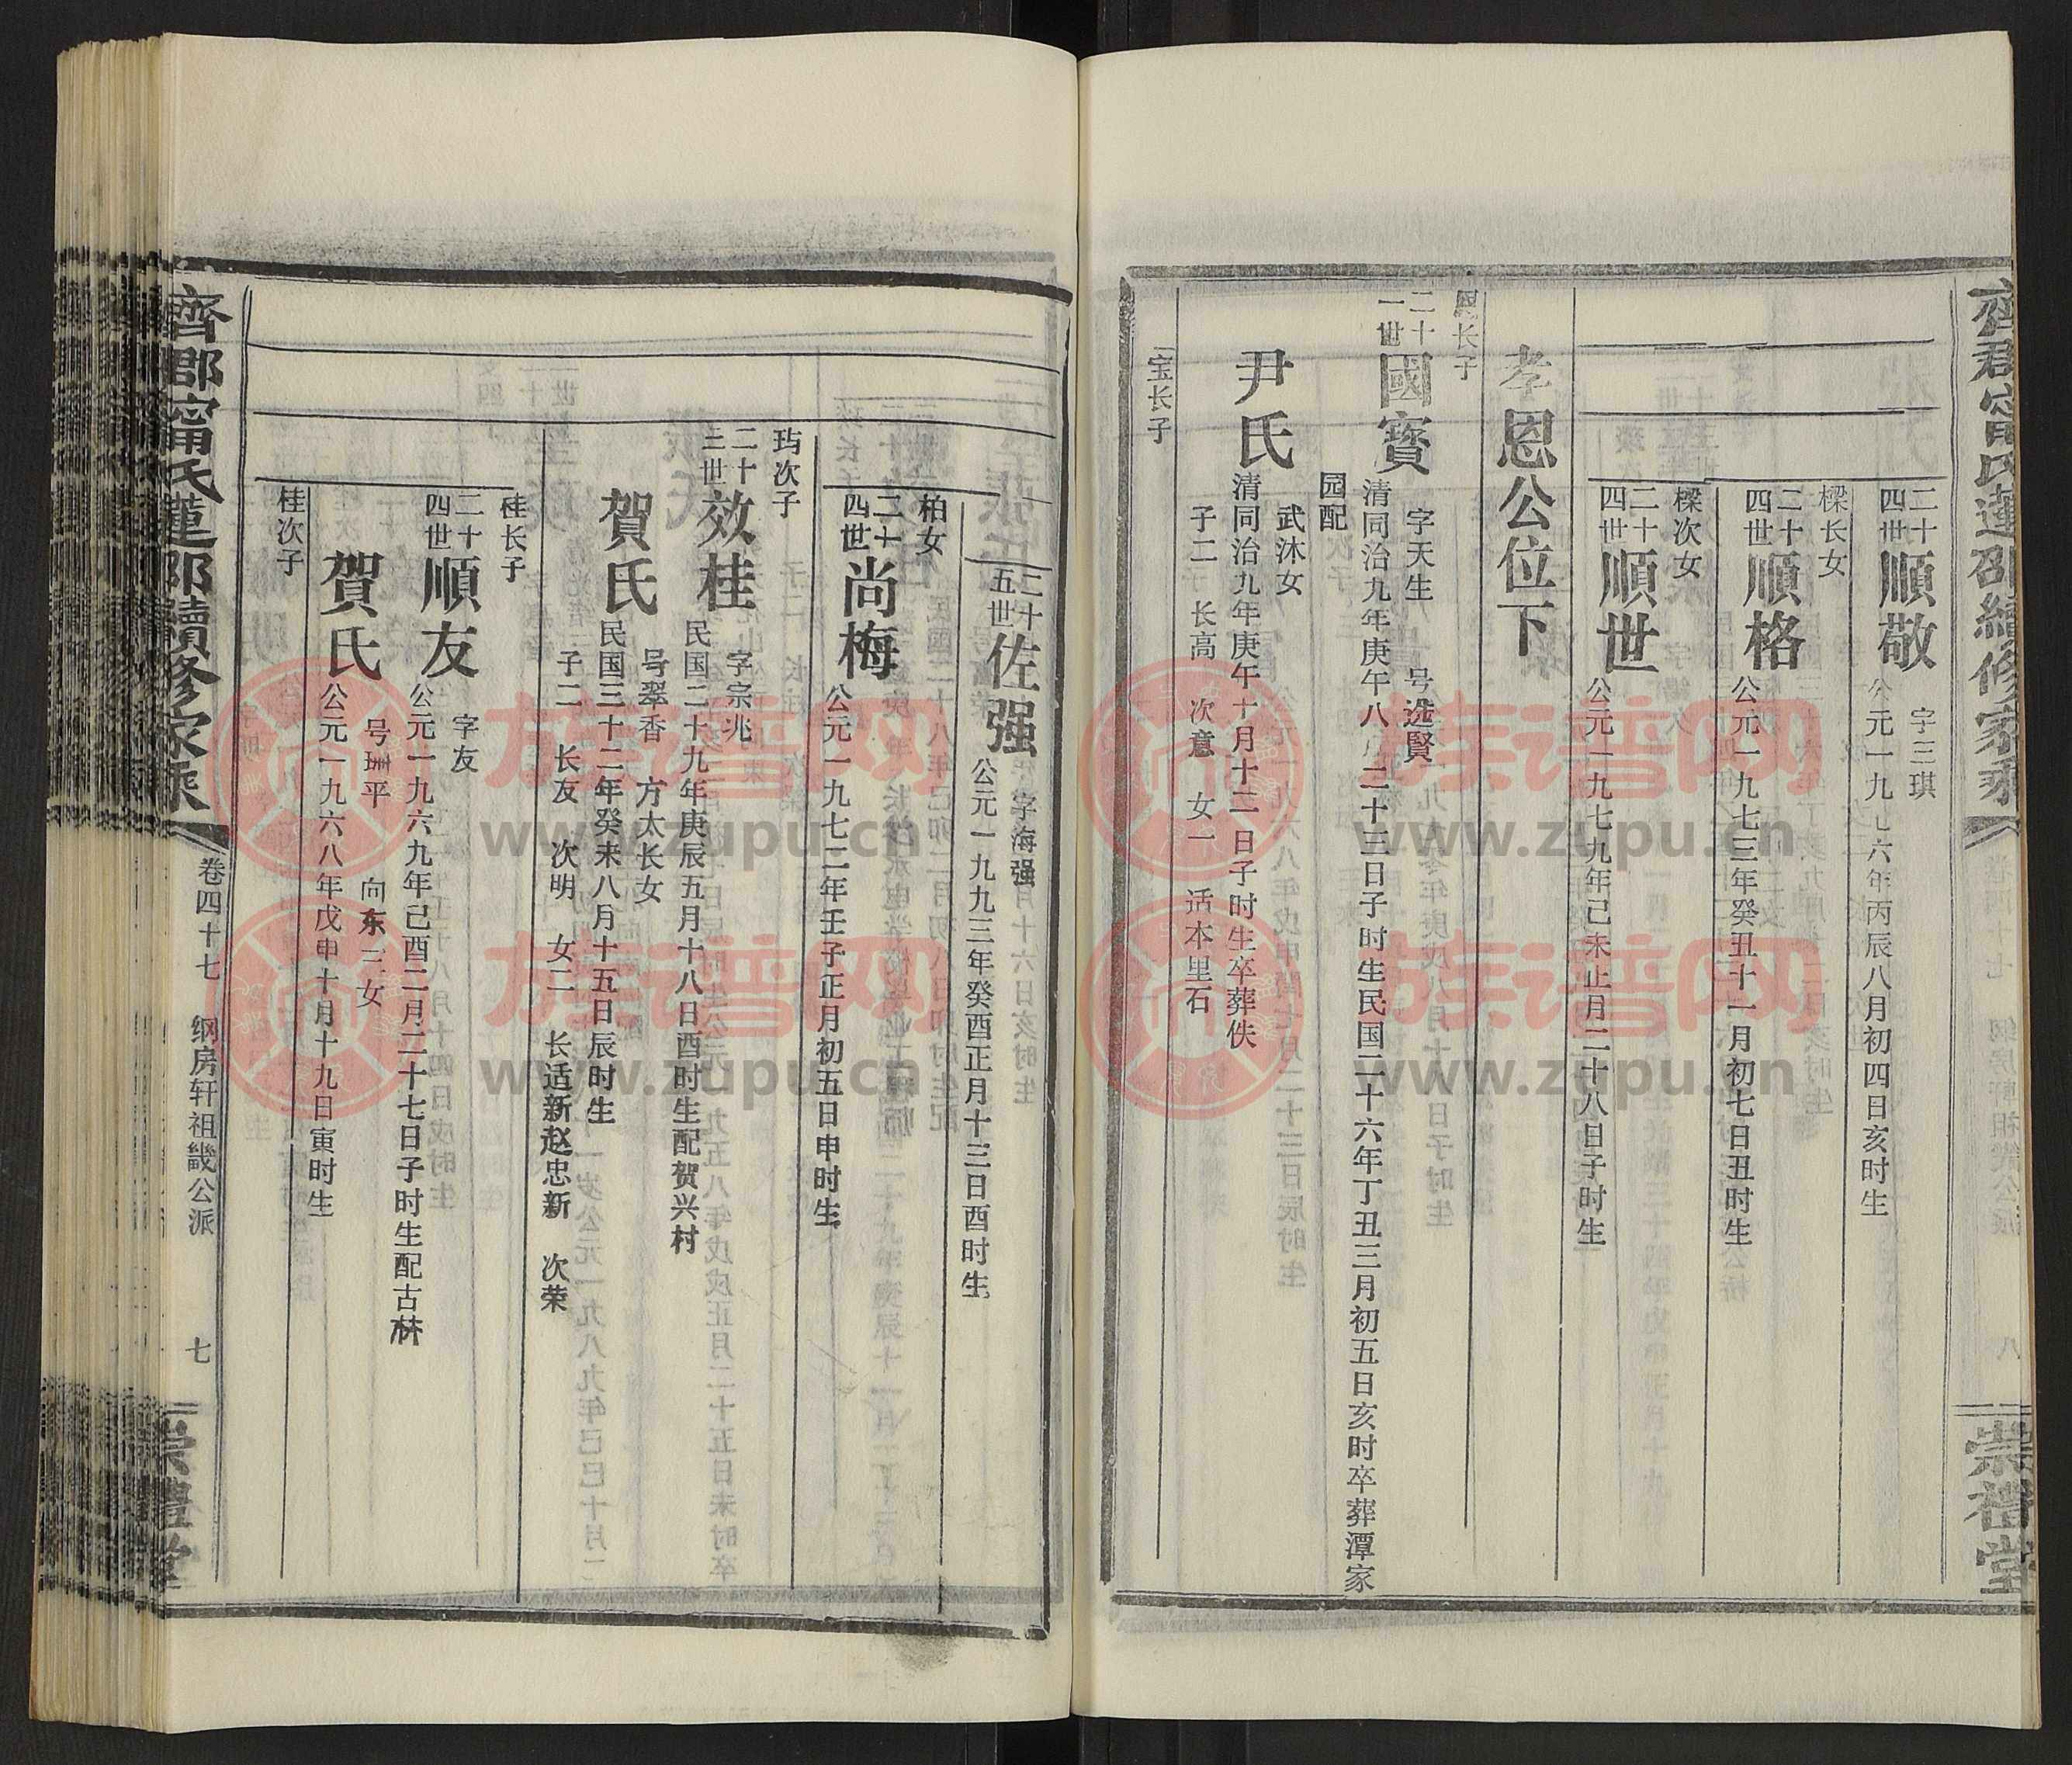 崇禮堂
二十四世
順敬
字三琪
公元一九七六年丙辰八月初四日亥时生
樑长女
二十四世
順格
公元一九七三年癸丑十一月初七日丑时生
樑次女
二十四世
順世
公元一九七九年己未正月二十八日子时生
孝恩公位下
恩长子
二十一世
國寶
字天生 号选賢
清同治九年庚午八月二十三日子时生民国二十六年丁丑三月初五日亥时卒葬潭家
园配
尹氏
武沐女
清同治九年庚午十月十二日子时生卒葬佚
子二 长高 次意 女一 适本里石
宝长子
二十五世
佐强
字海强
公元一九九三年癸酉正月十三日酉时生
柏女
二十四世
尚梅
公元一九七二年壬子正月初五日申时生
玙次子
二十三世
效桂
字宗兆
民国二十九年庚辰五月十八日酉时生配贺兴村
賀氏
号翠香 方太长女
民国三十二年癸未八月十五日辰时生
子二 长友 次明 女二 长适新赵忠新 次荣
桂长子
二十四世
順友
字友
公元一九六九年己酉二月二十七日子时生配古林
賀氏
向东三女
公元一九六八年戊申十月十九日寅时生
桂次子
齊郡甯氏蓮邵續修家乘
卷四十七 纲房轩祖畿公派 七
崇禮堂
族谱网
www.zupu.cn
族谱网
www.zupu.cn
族谱网
www.zupu.cn
族谱网
www.zupu.cn